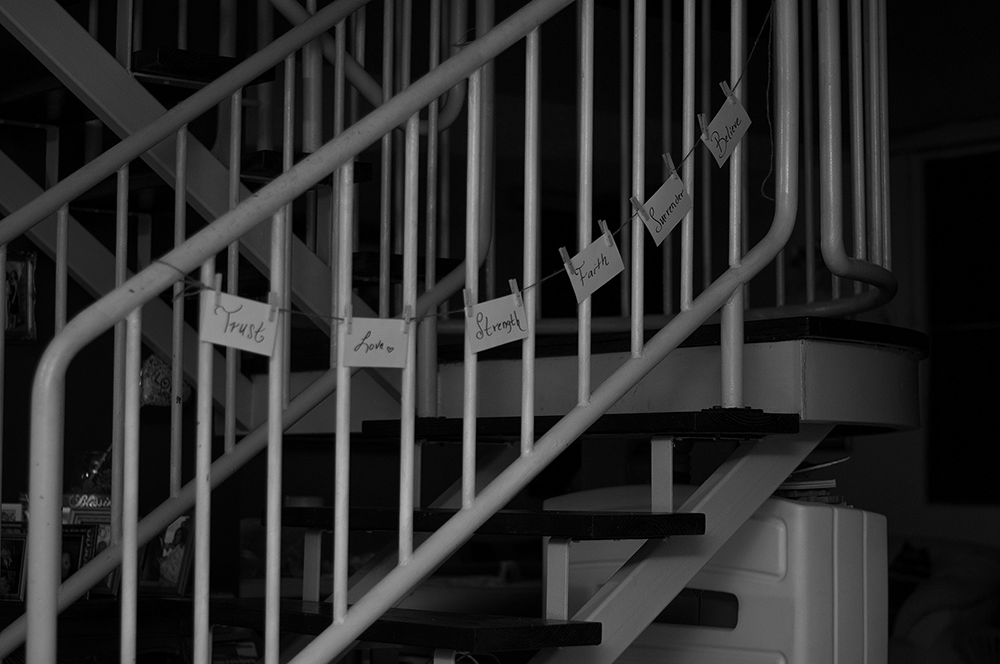 Trust
Love ♡
Strength
Faith
Surrender
Believe